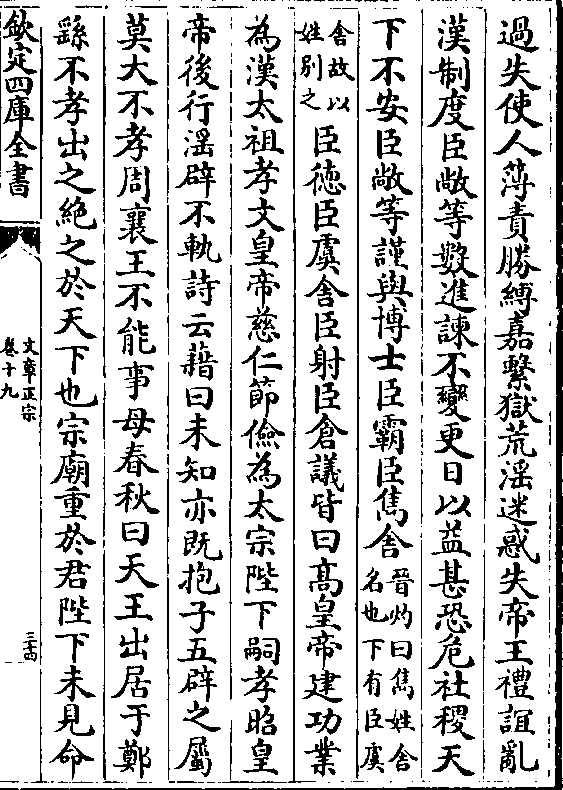 過失使人簿責勝縛嘉繫獄荒淫迷惑失帝王禮誼亂
漢制度臣敞等數進諫不變更日以益甚恐危社稷天
下不安臣敞等謹與博士臣霸臣雋舍
晉灼曰雋姓舍
名也下有臣虞
舍故以
姓别之
臣徳臣虞舍臣射臣倉議皆曰髙皇帝建功業
為漢太祖孝文皇帝慈仁節儉為太宗陛下嗣孝昭皇
帝後行淫辟不軌詩云藉曰未知亦既抱子五辟之屬
莫大不孝周襄王不能事母春秋曰天王出居于鄭
繇不孝出之絶之於天下也宗廟重於君陛下未見命
欽定四庫全書
文章正宗
卷十九
三十四